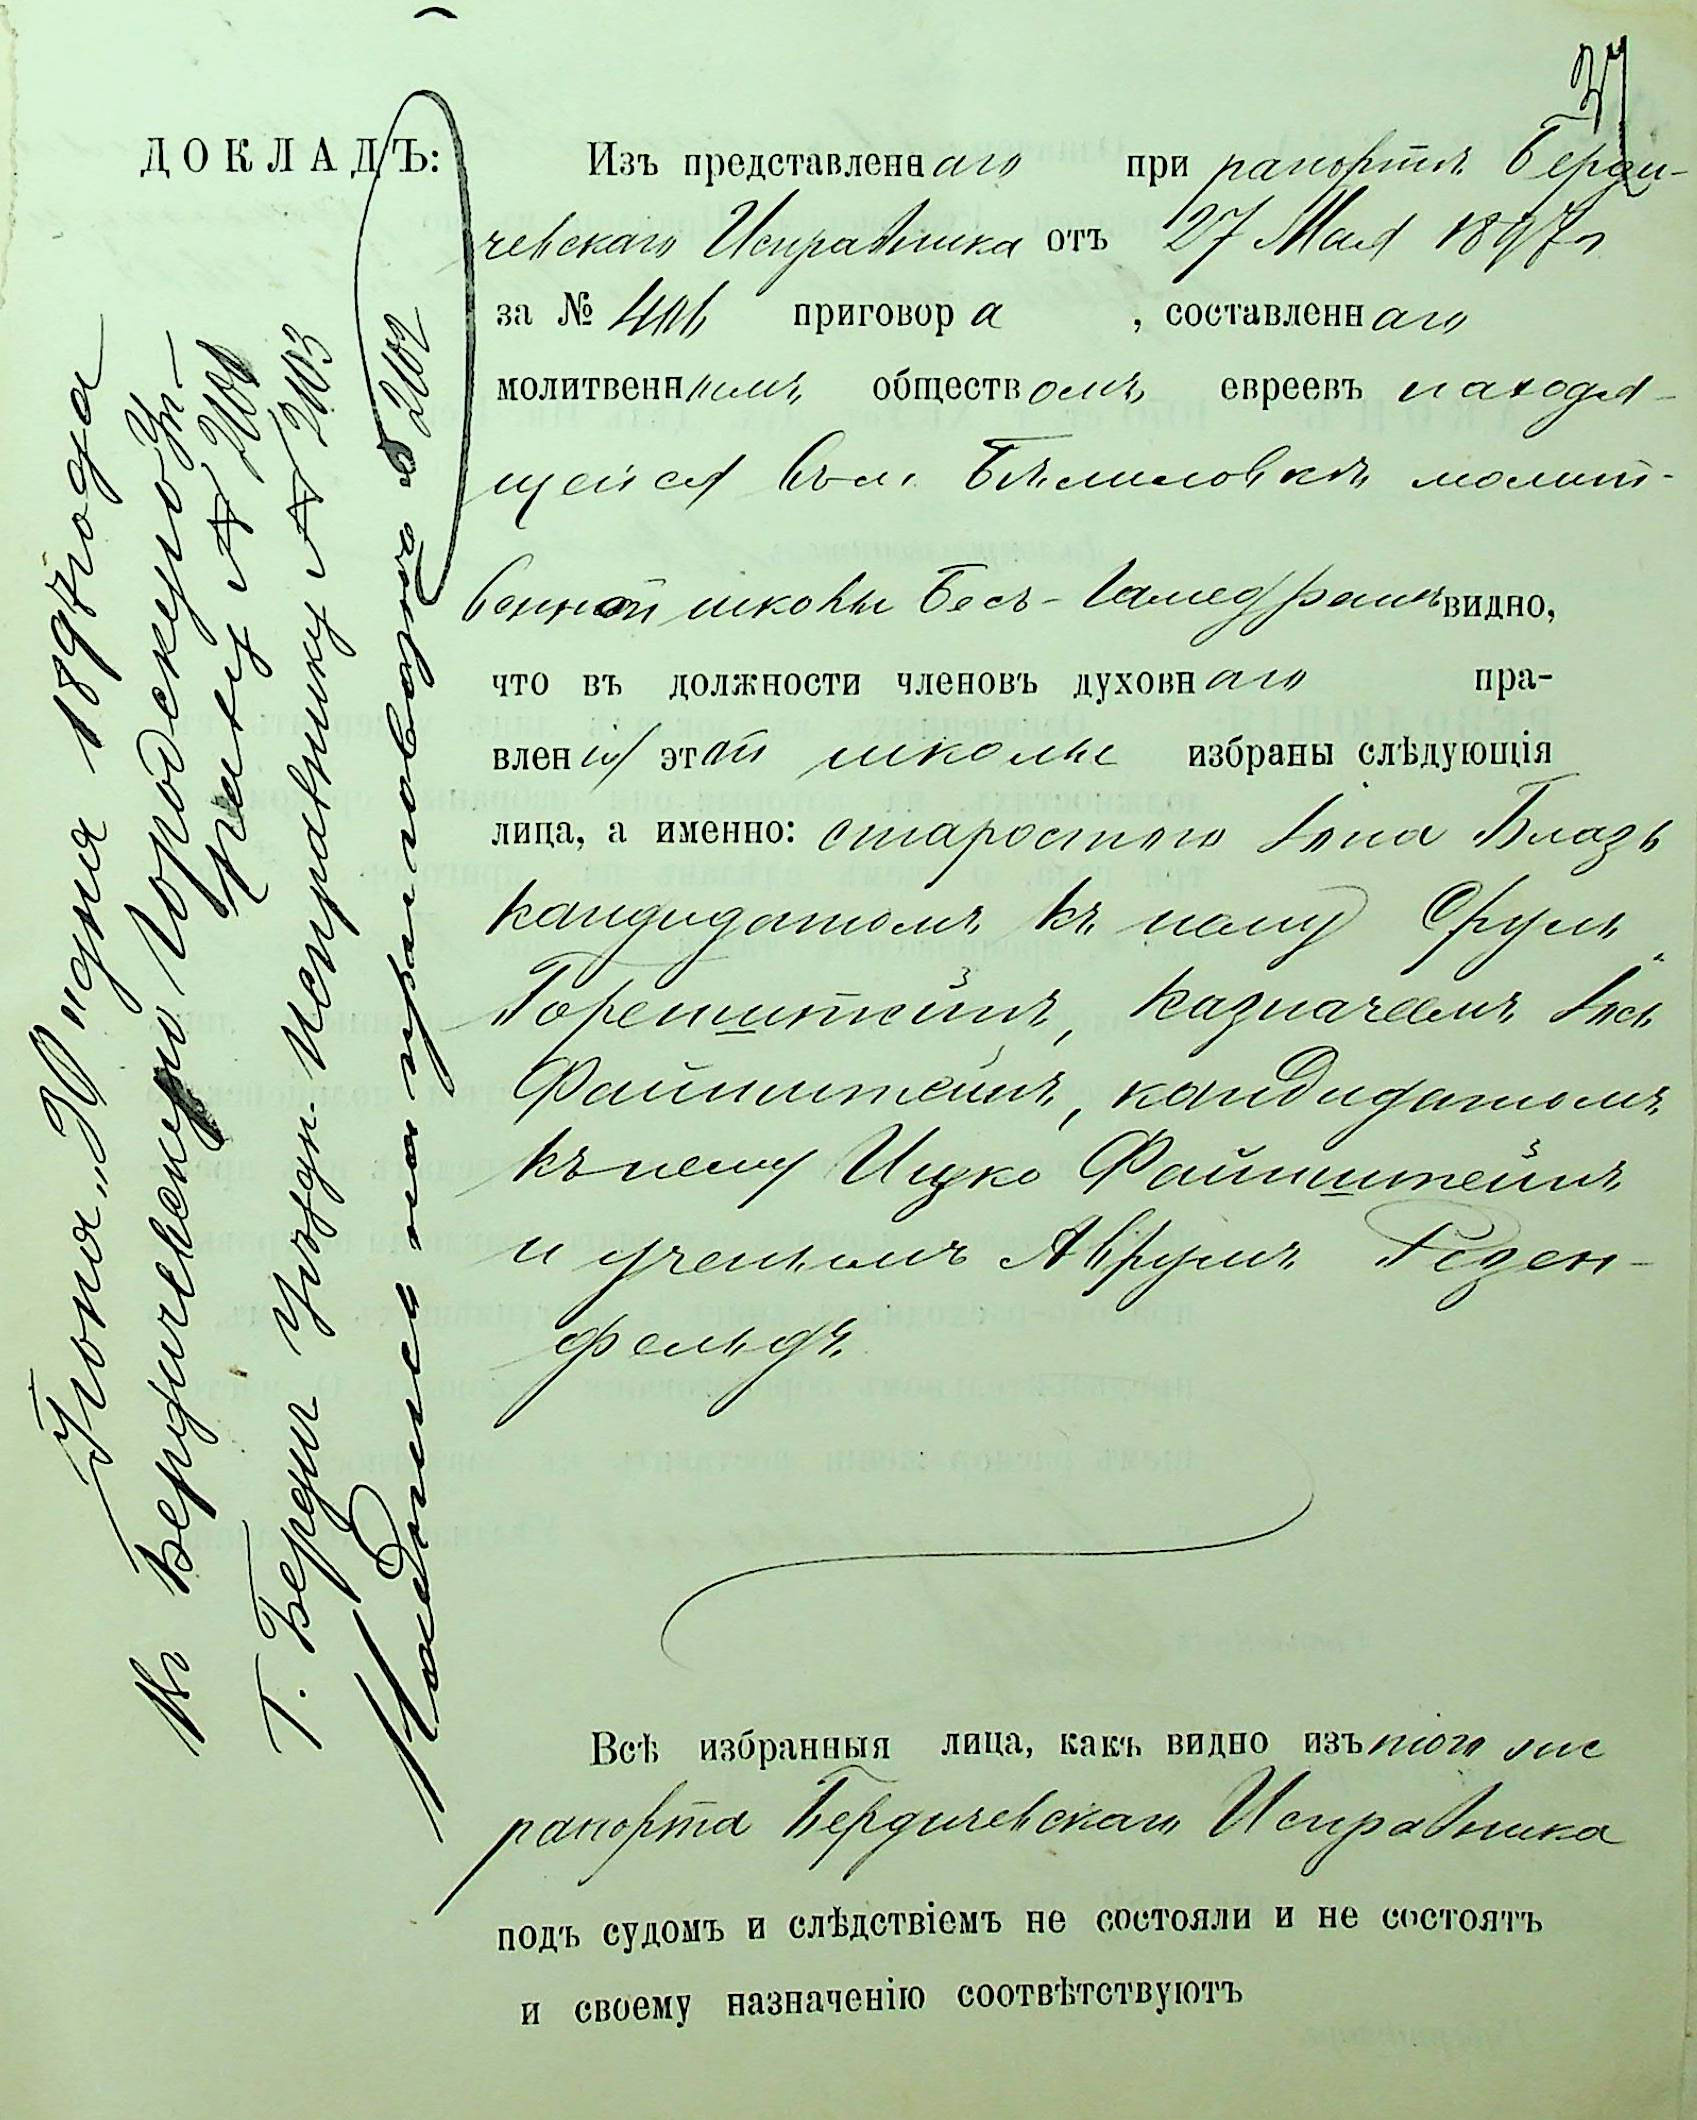 37
ДОКЛАДЪ:
Изъ представленнаго при рапортѣ Берди-
чевскаго Исправника отъ 27 Мая 1897 г
за № 406 приговора, составленнаго
молитвеннымъ обществомъ евреевъ находя-
щейся въ м. Бѣлиловкѣ молит-
венной школы Бесъ-Гамедрашъ видно,
что въ должности членовъ духовнаго пра-
вленія этой школы избраны слѣдующія
лица, а именно: старостою Іона Блазъ
кандидатомъ къ нему Срулъ
Горенштейнъ, казначеемъ Іось
Файнштейнъ, кандидатомъ
къ нему Ицко Файнштейнъ
и ученымъ Аврумъ Розен-
фельдъ.
Всѣ избранныя лица, какъ видно изъ того же
рапорта Бердичевскаго Исправника
подъ судомъ и слѣдствіемъ не состояли и не состоятъ
и своему назначенію соотвѣтствуютъ
Іюня „30" дня 1897 года
въ Бердичевскую Городскую Уп-
раву №
Г. Бердич. Уѣздн. Исправнику № 2103
Надпись на приговорѣ № 2102